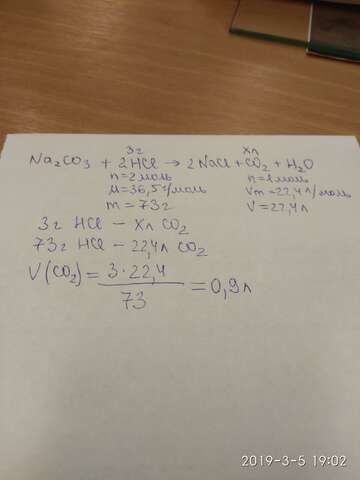 3г хл
Na₂CO₃ + 2HCl → 2NaCl + CO₂ + H₂O
n=2моль n=1моль
M=36,5г/моль Vm=22,4л/моль
m=73г V=22,4л
3г HCl – хл CO₂
73г HCl – 22,4л CO₂
V(CO₂) = 3·22,4 / 73 = 0,9л
2019-3-5 19:02